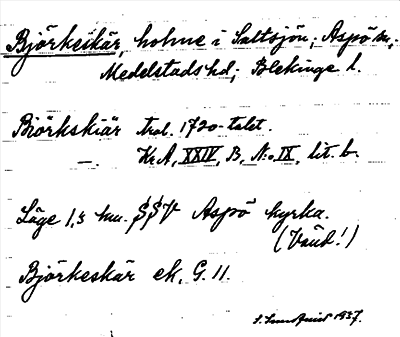 Björkeskär, holme i Saltsjön; Aspö sn;
Medelstads hd; Blekinge l.
Biörkskiär trol. 1720-talet.
—. Kr.A, XXIV, B, No. IX, lit. b.
Läge 1,5 km. SSV Aspö kyrka.
(Vänd!)
Björkeskär ek. G. 11.
1937.